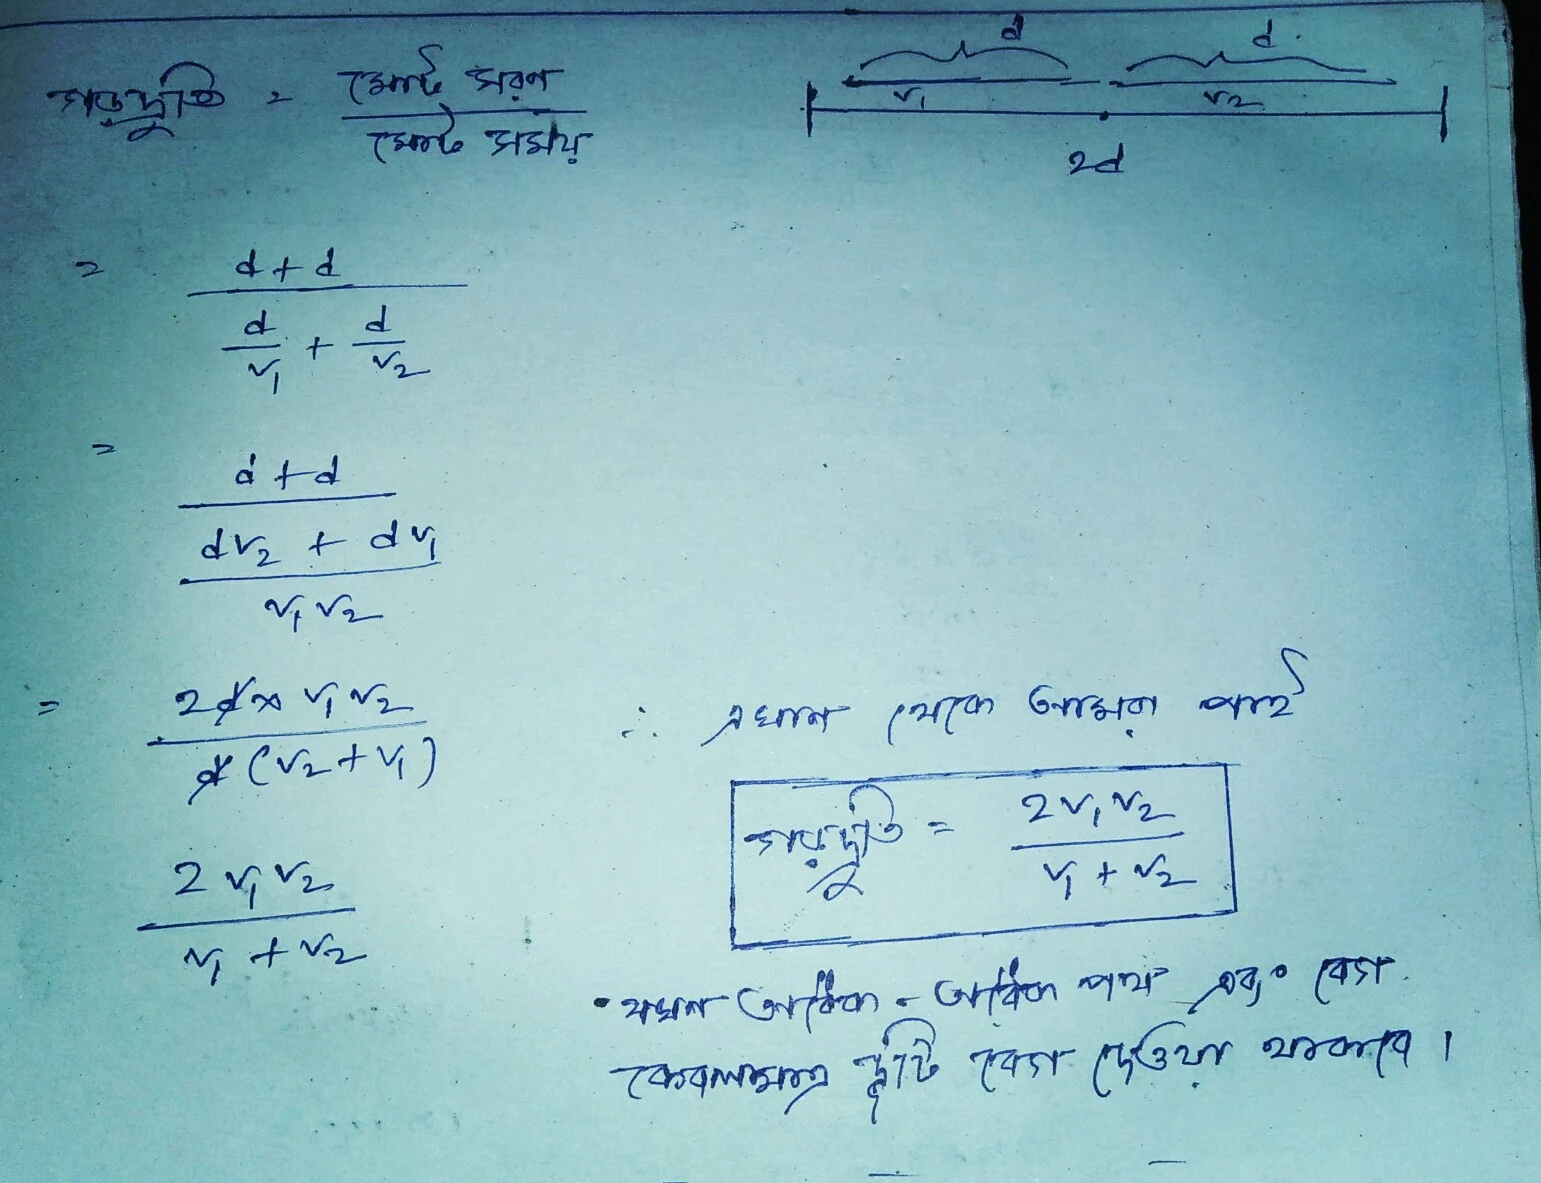 গড়দ্রুতি = মোট সরণ / মোট সময়
d d
v₁ v₂
2d
= (d + d) / (d/v₁ + d/v₂)
= (d + d) / ((dv₂ + dv₁) / v₁v₂)
= 2d × v₁v₂ / d(v₂ + v₁)
2v₁v₂ / (v₁ + v₂)
∴ এখান থেকে আমরা পাই
গড়দ্রুতি = 2v₁v₂ / (v₁ + v₂)
• যখন অর্ধেক - অর্ধেক পথ এবং বেগ
কেবলমাত্র দুটি বেগ দেওয়া থাকবে।